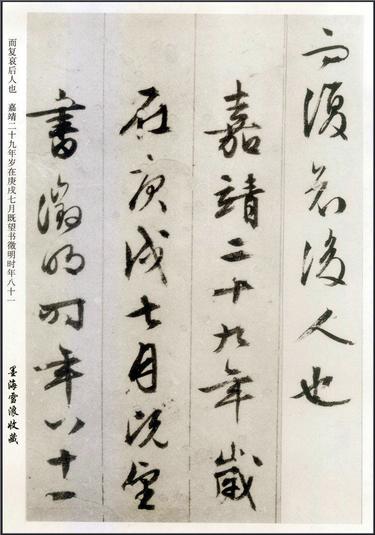 而復哀後人也
嘉靖二十九年歲
在庚戌七月既望
書徵明时年八十一
而复哀后人也　嘉靖二十九年岁在庚戌七月既望书徵明时年八十一
墨海雪浪收藏